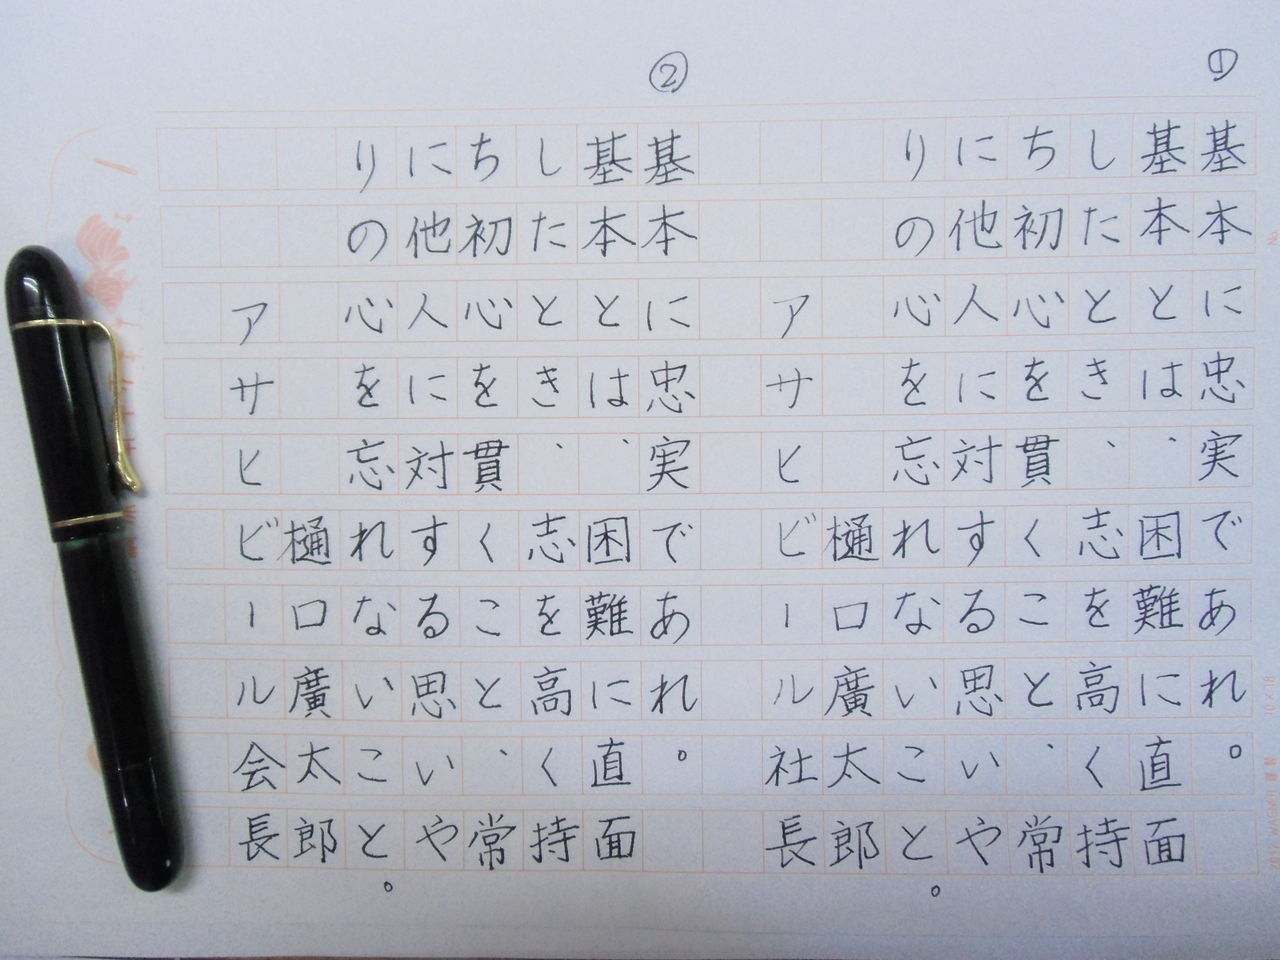 ①
基本に忠実であれ。
基本とは、困難に直面
したとき、志を高く持
ち初心を貫くこと、常
に他人に対する思いや
りの心を忘れないこと。
樋口廣太郎
アサヒビール社長
②
基本に忠実であれ。
基本とは、困難に直面
したとき、志を高く持
ち初心を貫くこと、常
に他人に対する思いや
りの心を忘れないこと。
樋口廣太郎
アサヒビール会長